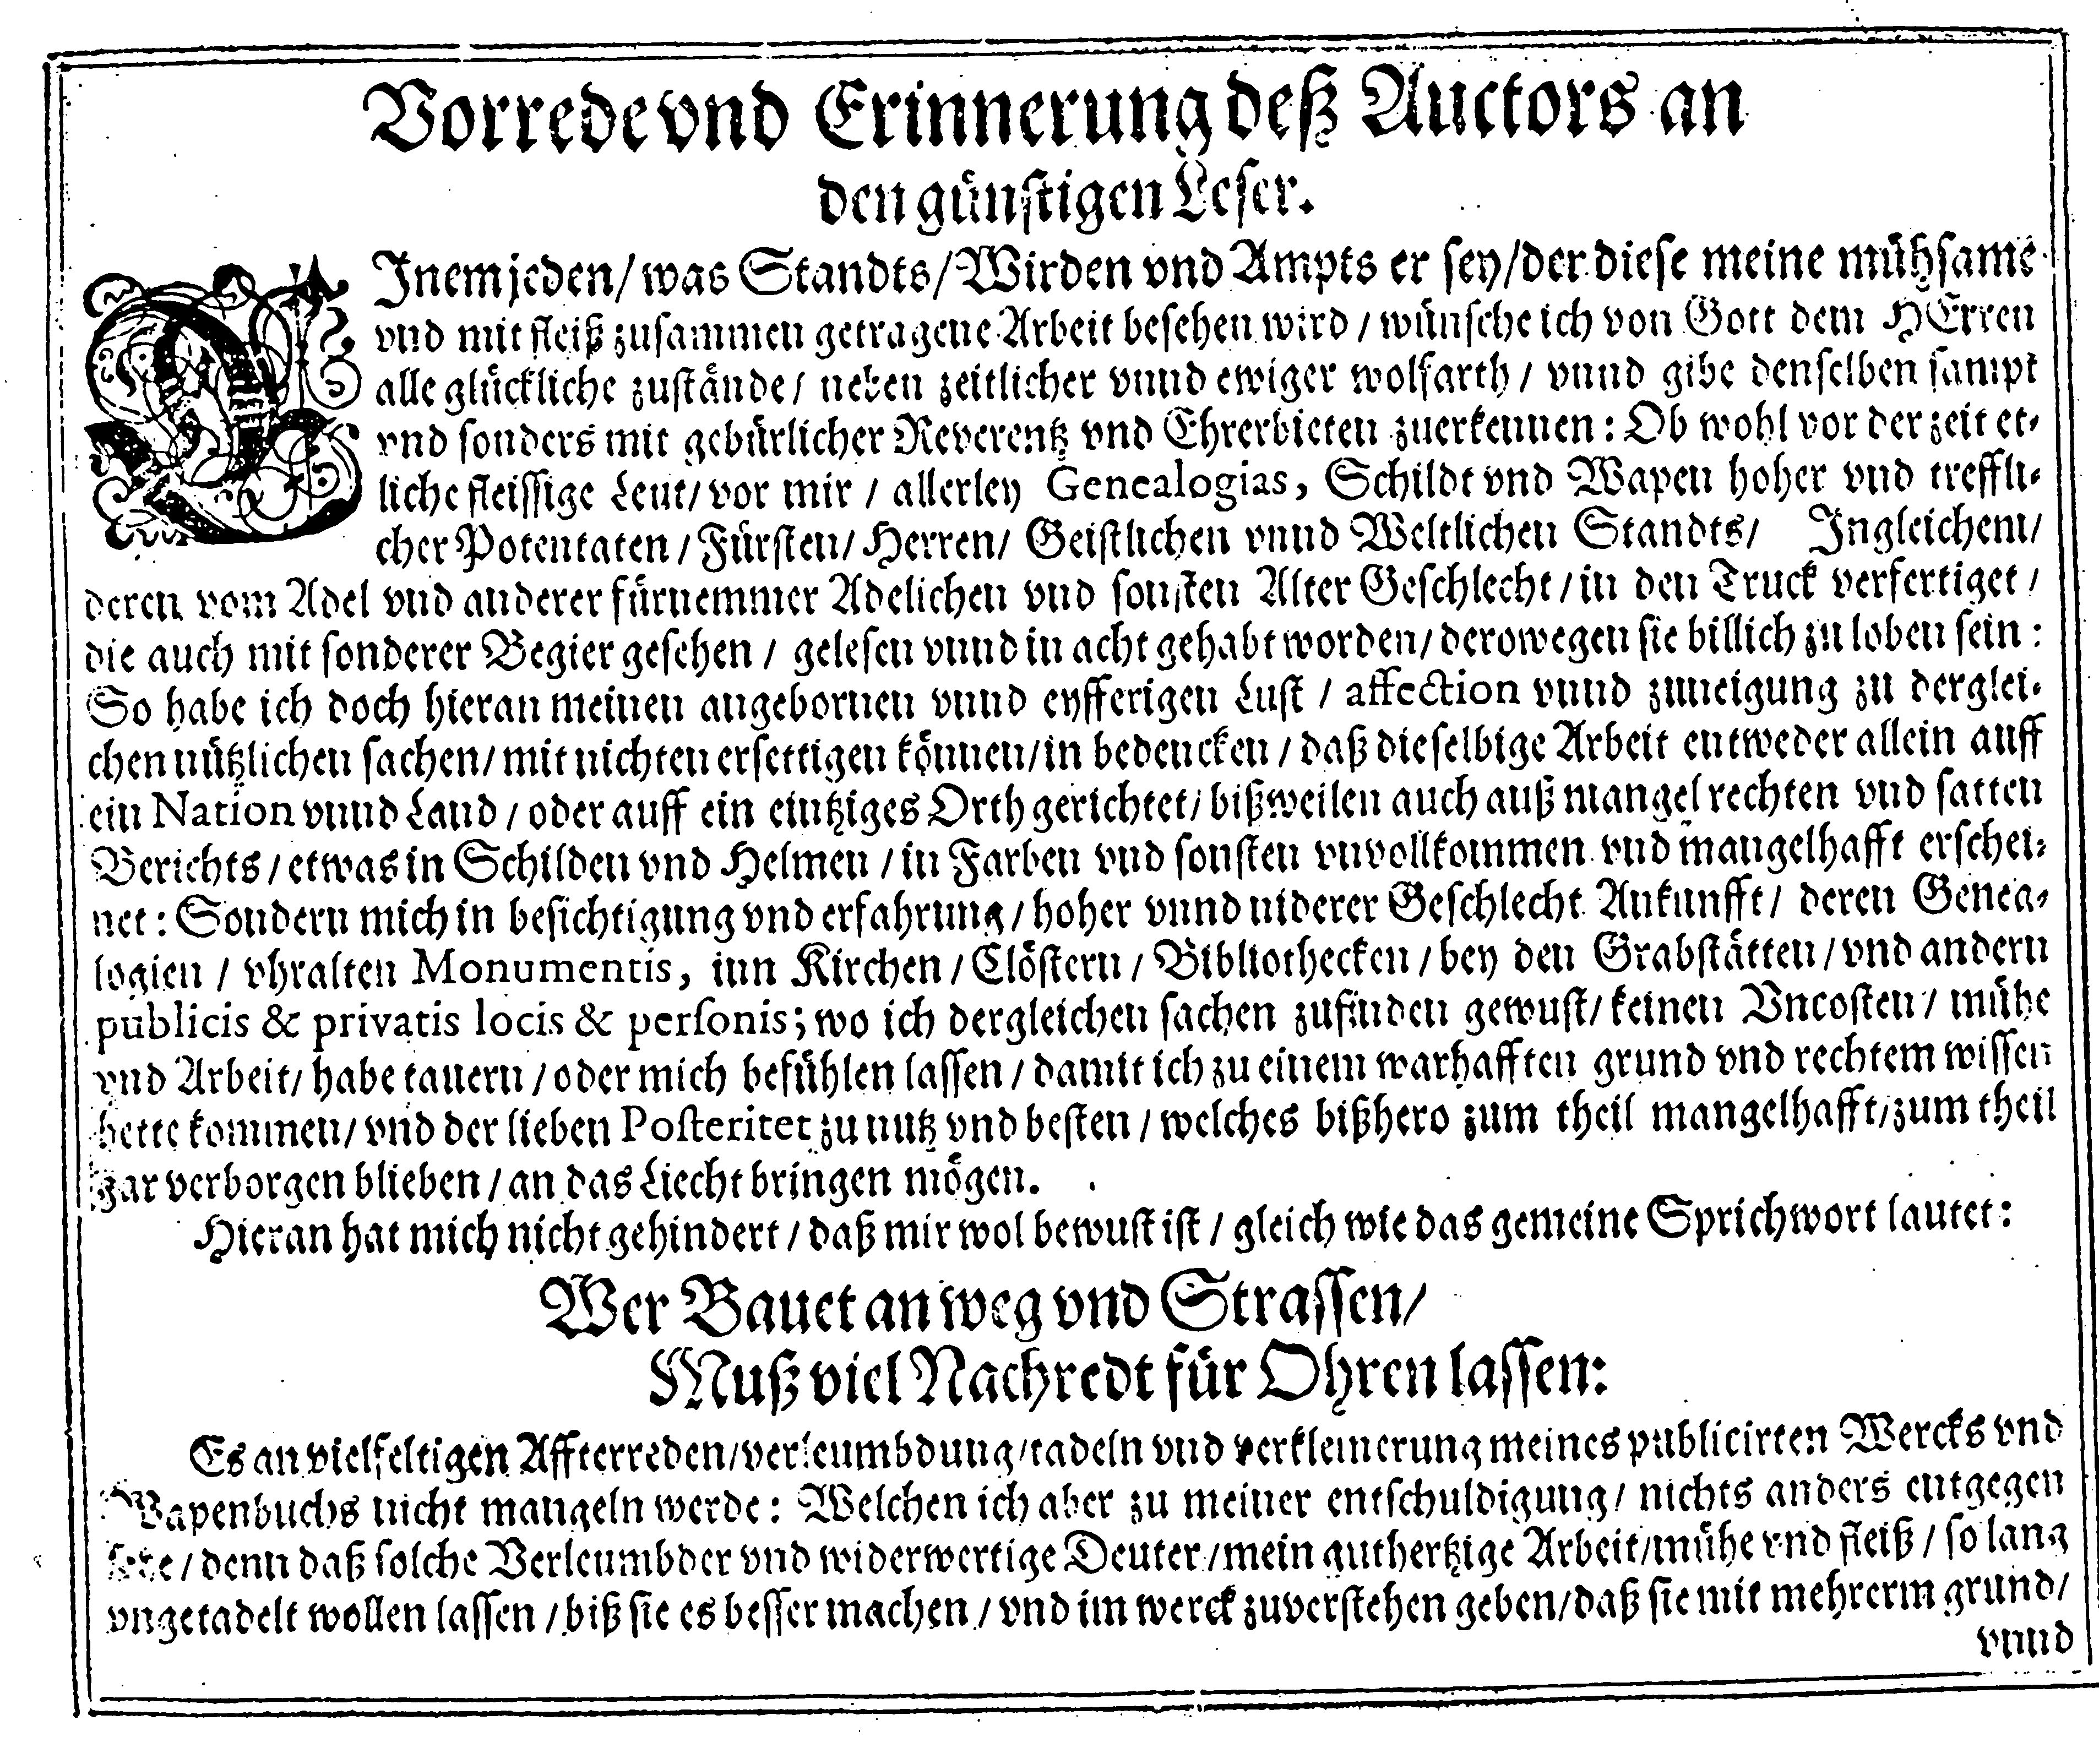 Vorrede vnd Erinnerung deß Auctors an
den günstigen Leser.
EJnem jeden / was Standts / Wirden vnd Ampts er sey / der diese meine mühsame
vnd mit fleiß zusammen getragene Arbeit besehen wird / wünsche ich von Gott dem HErren
alle glückliche zustände / neben zeitlicher vnnd ewiger wolfarth / vnnd gibe denselben sampt
vnd sonders mit gebürlicher Reverentz vnd Ehrerbieten zuerkennen: Ob wohl vor der zeit et-
liche fleissige Leut / vor mir / allerley Genealogias, Schildt vnd Wapen hoher vnd treffli-
cher Potentaten / Fürsten / Herren / Geistlichen vnnd Weltlichen Standts / Jngleichem /
deren vom Adel vnd anderer fürnemmer Adelichen vnd sonsten Alter Geschlecht / in den Truck verfertiget /
die auch mit sonderer Begier gesehen / gelesen vnnd in acht gehabt worden / derowegen sie billich zu loben sein:
So habe ich doch hieran meinen angebornen vnnd eyfferigen Lust / affection vnnd zuneigung zu derglei-
chen nützlichen sachen / mit nichten ersettigen können / in bedencken / daß dieselbige Arbeit entweder allein auff
ein Nation vnnd Land / oder auff ein eintziges Orth gerichtet / bißweilen auch auß mangel rechten vnd satten
Berichts / etwas in Schilden vnd Helmen / in Farben vnd sonsten vnvollkommen vnd mangelhafft erschei-
net: Sondern mich in besichtigung vnd erfahrung / hoher vnnd niderer Geschlecht Ankunfft / deren Genea-
logien / vhralten Monumentis, inn Kirchen / Clöstern / Bibliothecken / bey den Grabstätten / vnd andern
publicis & privatis locis & personis; wo ich dergleichen sachen zufinden gewust / keinen Vncosten / mühe
vnd Arbeit / habe tauern / oder mich befühlen lassen / damit ich zu einem warhafften grund vnd rechtem wissen
hette kommen / vnd der lieben Posteritet zu nutz vnd besten / welches bißhero zum theil mangelhafft / zum theil
gar verborgen blieben / an das Liecht bringen mögen.
Hieran hat mich nicht gehindert / daß mir wol bewust ist / gleich wie das gemeine Sprichwort lautet:
Wer Bauet an weg vnd Strassen /
Muß viel Nachredt für Ohren lassen:
Es an vielfeltigen Affterreden / verleumbdung / tadeln vnd verkleinerung meines publicirten Wercks vnd
Wapenbuchs nicht mangeln werde: Welchen ich aber zu meiner entschuldigung / nichts anders entgegen
setze / denn daß solche Verleumbder vnd widerwertige Deuter / mein guthertzige Arbeit / mühe vnd fleiß / so lang
vngetadelt wollen lassen / biß sie es besser machen / vnd im werck zuverstehen geben / daß sie mit mehrerm grund /
vnnd